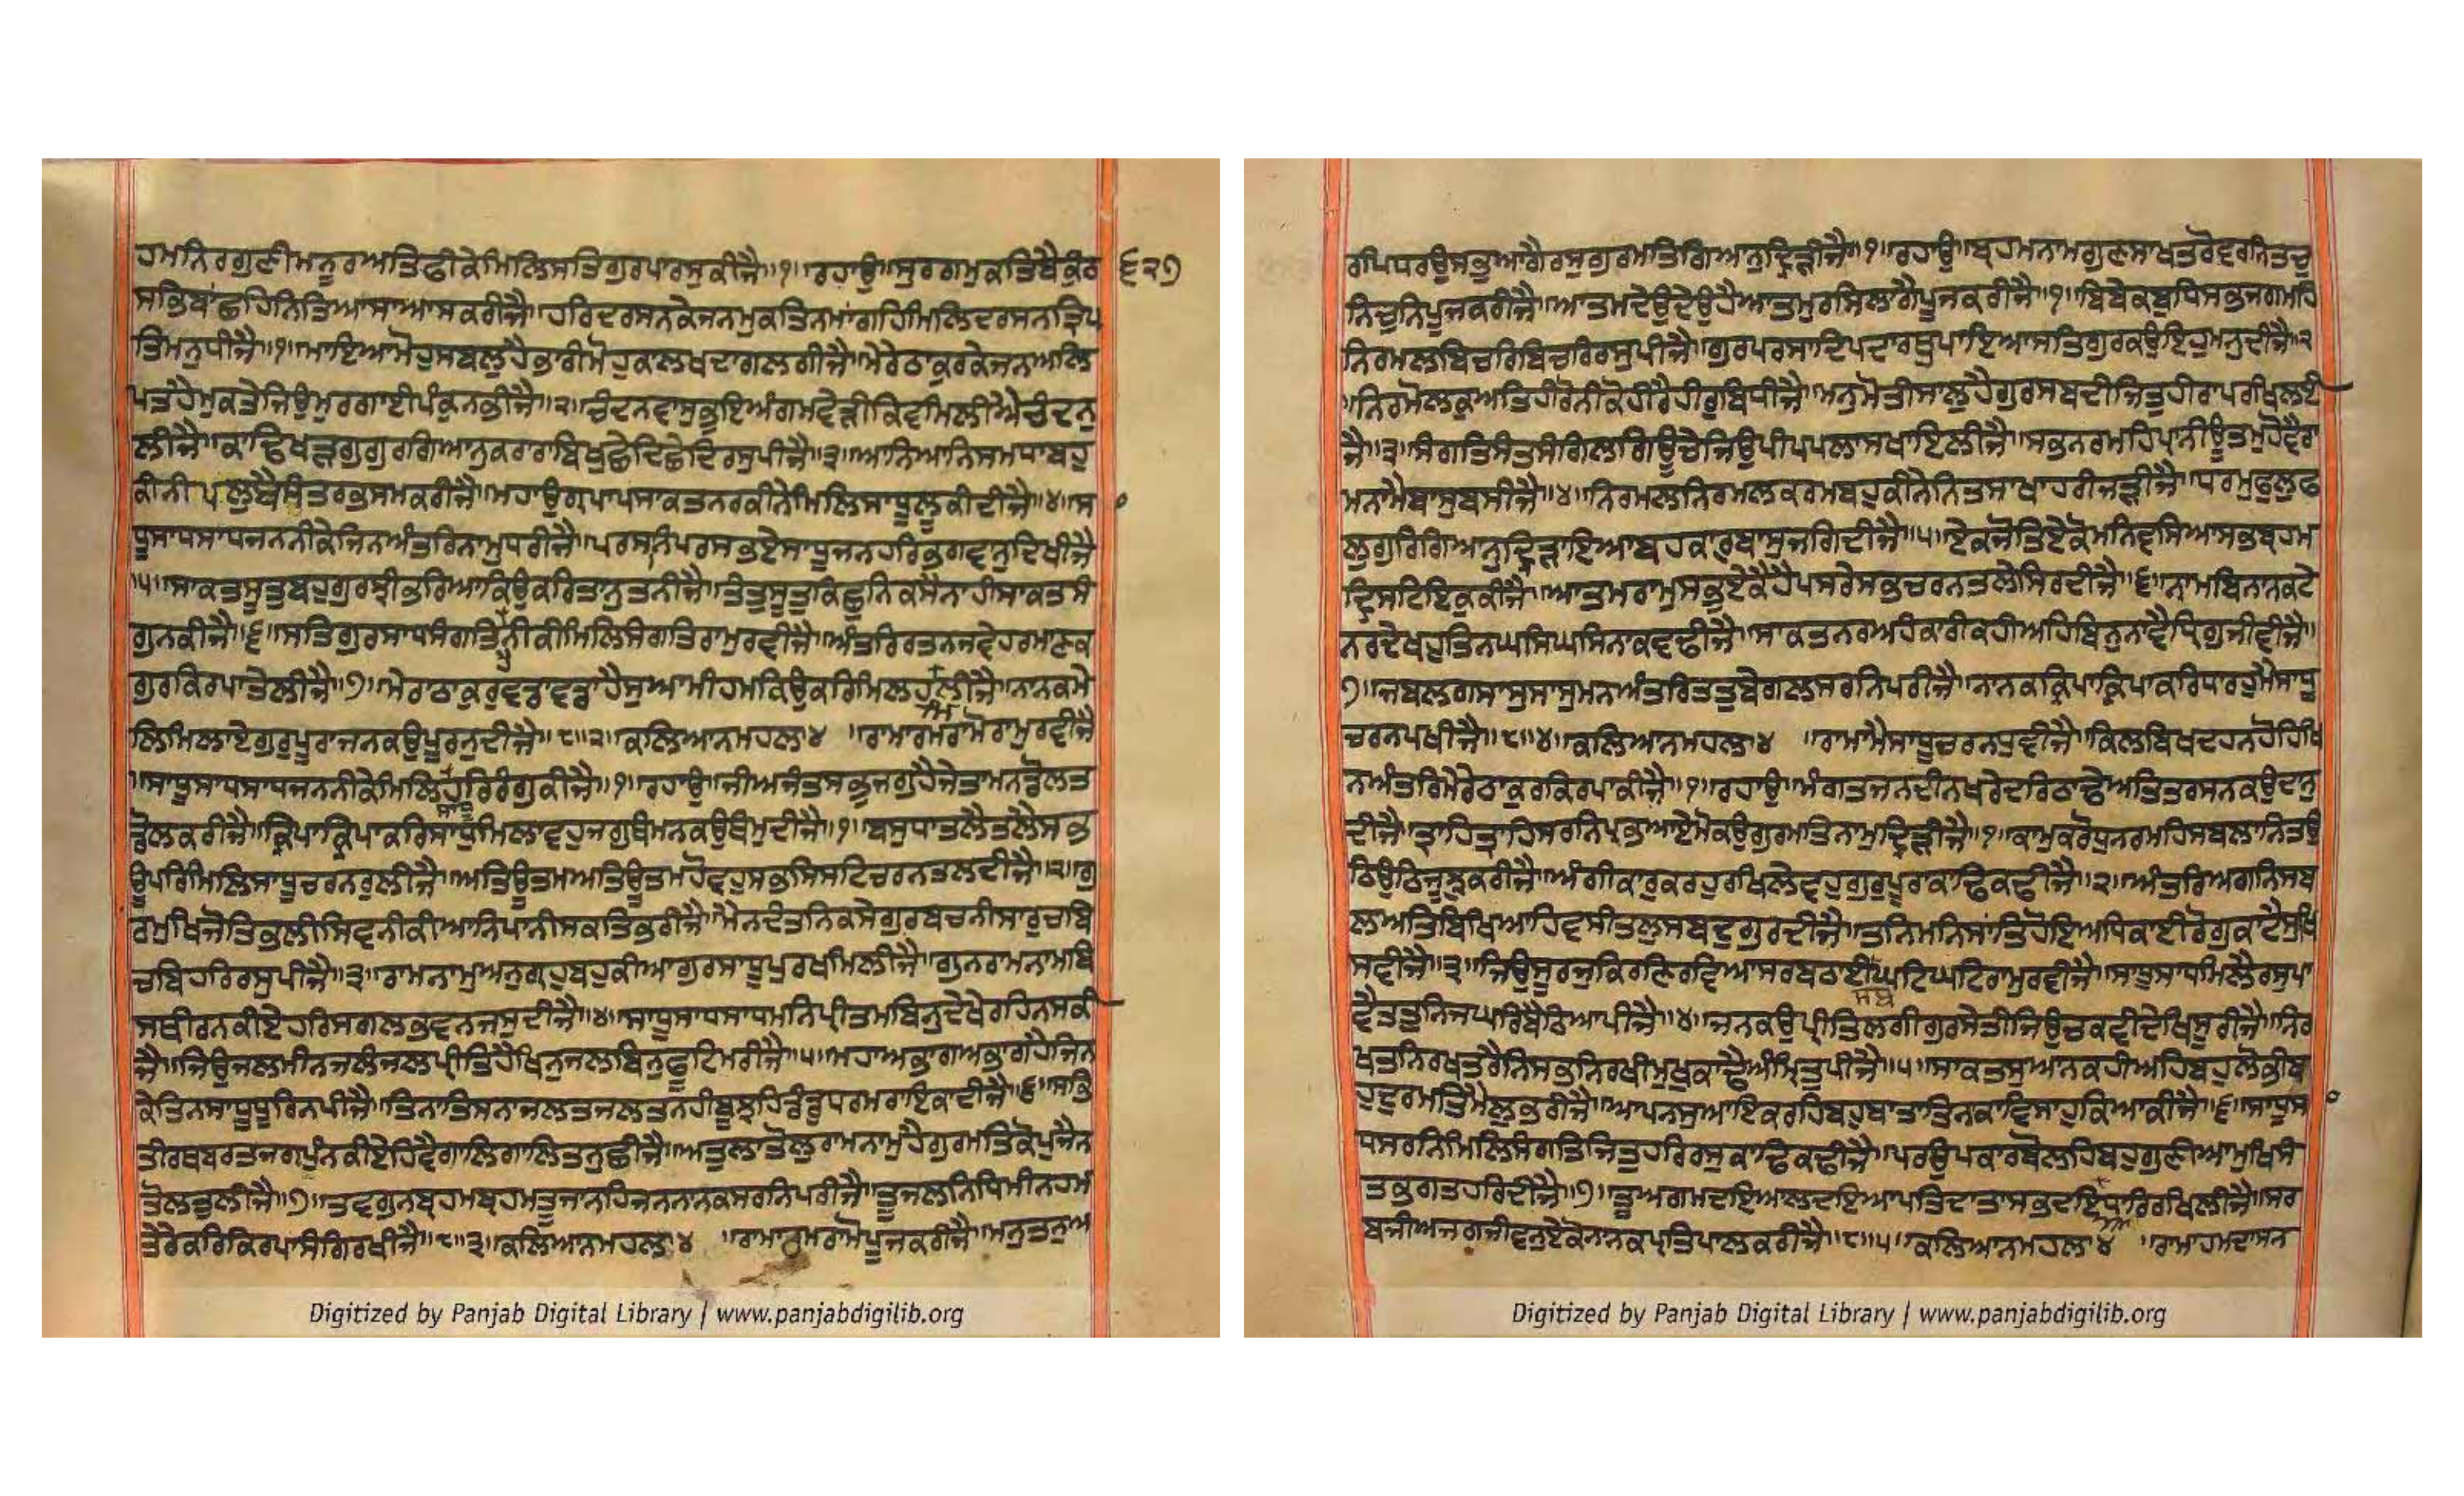 ਹਮਨਿਰਗੁਣੀਮਨੂਰਅਤਿਫੀਕੇਮਿਲਿਸਤਿਗੁਰਪਾਰਸੁਕੀਜੈ॥੧॥ਰਹਾਉ॥ਸੁਰਗਮੁਕਤਿਬੈਕੁੰਠ ੬੨੭
ਸਭਿਬਾਂਛਹਿਨਿਤਿਆਸਾਆਸਕਰੀਜੈ॥ਹਰਿਦਰਸਨਕੇਜਨਮੁਕਤਿਨਮਾਂਗਹਿਮਿਲਿਦਰਸਨਤ੍ਰਿਪ
ਤਿਮਨੁਧੀਜੈ॥੧॥ਮਾਇਆਮੋਹੁਸਬਲੁਹੈਭਾਰੀਮੋਹੁਕਾਲਖਦਾਗਲਗੀਜੈ॥ਮੇਰੇਠਾਕੁਰਕੇਜਨਅਲਿ
ਪਤਹੈਮੁਕਤੇਜਿਉਮੁਰਗਾਈਪੰਕੁਨਭੀਜੈ॥੨॥ਚੰਦਨਵਾਸੁਭੁਇਅੰਗਮਵੇੜੀਕਿਵਮਿਲੀਐਚੰਦਨੁ
ਲੀਜੈ॥ਕਾਢਿਖੜਗੁਗੁਰਗਿਆਨੁਕਰਾਰਾਬਿਖੁਛੇਦਿਛੇਦਿਰਸੁਪੀਜੈ॥੩॥ਆਨਿਆਨਿਸਮਧਾਬਹੁ
ਕੀਨੀਪਲੁਬੈਸੰਤਰਭਸਮਕਰੀਜੈ॥ਮਹਾਉਗ੍ਰਪਾਪਸਾਕਤਨਰਕੀਨੇਮਿਲਿਸਾਧੂਲੂਕੀਦੀਜੈ॥੪॥ਸਾ
ਧੂਸਾਧਸਾਧਜਨਨੀਕੇਜਿਨਅੰਤਰਿਨਾਮੁਧਰੀਜੈ॥ਪਰਸਨਿਪਰਸਭਏਸਾਧੂਜਨਹਰਿਭਗਵਾਨੁਦਿਖੀਜੈ
॥੫॥ਸਾਕਤਸੂਤੁਬਹੁਗੁਰਝੀਭਰਿਆਕਿਉਕਰਿਤਾਨੁਤਨੀਜੈ॥ਤੰਤੁਸੂਤੁਕਿਛੁਨਿਕਸੈਨਾਹੀਸਾਕਤਸੰ
ਗੁਨਕੀਜੈ॥੬॥ਸਤਿਗੁਰਸਾਧਸੰਗਤਿਨੀਕੀਮਿਲਿਸੰਗਤਿਰਾਮੁਰਵੀਜੈ॥ਅੰਤਰਿਰਤਨਜਵੇਹਰਮਾਣਕ
ਗੁਰਕਿਰਪਾਤੇਲੀਜੈ॥੭॥ਮੇਰਾਠਾਕੁਰਵਡਾਵਡਾਹੈਸੁਆਮੀਹਮਕਿਉਕਰਿਮਿਲਹਲੀਜੈ॥ਨਾਨਕਮੇ
ਲਿਮਿਲਾਏਗੁਰੁਪੂਰਾਜਨਕਉਪੂਰਨੁਦੀਜੈ॥੮॥੨॥ਕਲਿਆਨਮਹਲਾ੪ ॥ਰਾਮਾਰਮਰਾਮੋਰਾਮੁਰਵੀਜੈ
॥ਸਾਧੂਸਾਧਸਾਧਜਨਨੀਕੇਮਿਲਿਹਰਿਰੰਗੁਕੀਜੈ॥੧॥ਰਹਾਉ॥ਜੀਅਜੰਤਸਭੁਜਗੁਹੈਜੇਤਾਮਨਡੋਲਤ
ਡੋਲਕਰੀਜੈ॥ਕ੍ਰਿਪਾਕ੍ਰਿਪਾਕਰਿਸਾਧੁਮਿਲਾਵਹੁਜਗੁਥੰਮਨਕਉਥੰਮੁਦੀਜੈ॥੧॥ਬਸੁਧਾਤਲੈਤਲੈਸਭ
ਊਪਰਿਮਿਲਿਸਾਧੂਚਰਨਰੁਲੀਜੈ॥ਅਤਿਊਤਮਅਤਿਊਤਮਹੋਵਹੁਸਭਸਿਸਟਿਚਰਨਤਲਦੀਜੈ॥੨॥ਗੁ
ਰਮੁਖਿਜੋਤਿਭਲੀਸਿਵਨੀਕੀਆਨਿਪਾਨੀਸਕਤਿਭਰੀਜੈ॥ਮੈਨਦੰਤਨਿਕਸੇਗੁਰਬਚਨੀਸਾਰੁਚਾਬਿ
ਚਬਿਹਰਿਰਸੁਪੀਜੈ॥੩॥ਰਾਮਨਾਮੁਅਨੁਗ੍ਰਹੁਬਹੁਕੀਆਗੁਰਸਾਧੂਪੁਰਖਮਿਲੀਜੈ॥ਗੁਨਰਾਮਨਾਮਬਿ
ਸਥੀਰਨਕੀਏਹਰਿਸਗਲਭਵਨਜਸੁਦੀਜੈ॥੪॥ਸਾਧੂਸਾਧਸਾਧਮਨਿਪ੍ਰੀਤਮਬਿਨੁਦੇਖੇਰਹਿਨਸਕੀ
ਜੈ॥ਜਿਉਜਲਮੀਨਜਲੰਜਲਪ੍ਰੀਤਿਹੈਖਿਨੁਜਲਬਿਨੁਫੂਟਿਮਰੀਜੈ॥੫॥ਮਹਾਅਭਾਗਅਭਾਗਹੈਜਿਨ
ਕੇਤਿਨਸਾਧੂਧੂਰਿਨਪੀਜੈ॥ਤਿਨਾਤਿਸਨਾਜਲਤਜਲਤਨਹੀਬੂਝਹਿਡੰਡੁਧਰਮਰਾਇਕਾਦੀਜੈ॥੬॥ਸਭਿ
ਤੀਰਥਬਰਤਜਗ੍ਯਪੁੰਨਕੀਏਹਿਵੈਗਾਲਿਗਾਲਿਤਨੁਛੀਜੈ॥ਅਤੁਲਾਤੋਲੁਰਾਮਨਾਮੁਹੈਗੁਰਮਤਿਕੋਪੁਜੈਨ
ਤੋਲਤੁਲੀਜੈ॥੭॥ਤਵਗੁਨਬ੍ਰਹਮਬ੍ਰਹਮਤੂਜਾਨਹਿਜਨਨਾਨਕਸਰਨਿਪਰੀਜੈ॥ਤੂਜਲਨਿਧਿਮੀਨਹਮ
ਤੇਰੇਕਰਿਕਿਰਪਾਸੰਗਿਰਖੀਜੈ॥੮॥੩॥ਕਲਿਆਨਮਹਲਾ੪ ॥ਰਾਮਾਰਮਰਾਮੋਪੂਜਕਰੀਜੈ॥ਮਨੁਤਨੁਅ
ਰਪਿਧਰਉਸਭੁਆਗੈਰਸੁਗੁਰਮਤਿਗਿਆਨੁਦ੍ਰਿੜੀਜੈ॥੧॥ਰਹਾਉ॥ਬ੍ਰਹਮਨਾਮਗੁਣਸਾਖਤਰੋਵਰਨਿਤਚੁ
ਨਿਚੁਨਿਪੂਜਕਰੀਜੈ॥ਆਤਮਦੇਉਦੇਉਹੈਆਤਮੁਰਸਿਲਾਗੈਪੂਜਕਰੀਜੈ॥੧॥ਬਿਬੇਕਬੁਧਿਸਭਜਗਮਹਿ
ਨਿਰਮਲਬਿਚਰਿਬਿਚਰਿਰਸੁਪੀਜੈ॥ਗੁਰਪਰਸਾਦਿਪਦਾਰਥੁਪਾਇਆਸਤਿਗੁਰਕਉਇਹੁਮਨੁਦੀਜੈ॥੨
॥ਨਿਰਮੋਲਕੁਅਤਿਹੀਰੋਨੀਕੋਹੀਰੈਹੀਰੁਬਿਧੀਜੈ॥ਮਨੁਮੋਤੀਸਾਲੁਹੈਗੁਰਸਬਦੀਜਿਤੁਹੀਰਾਪਰਖਿਲਈ
ਜੈ॥੩॥ਸੰਗਤਿਸੰਤਸੰਗਿਲਗਿਊਚੇਜਿਉਪੀਪਪਲਾਸਖਾਇਲੀਜੈ॥ਸਭਨਰਮਹਿਪ੍ਰਾਨੀਊਤਮੁਹੋਵੈਰਾ
ਮਨਾਮੈਬਾਸੁਬਸੀਜੈ॥੪॥ਨਿਰਮਲਨਿਰਮਲਕਰਮਬਹੁਕੀਨੇਨਿਤਸਾਖਾਹਰੀਜੜੀਜੈ॥ਧਰਮੁਫੁਲੁਫ
ਲੁਗੁਰਿਗਿਆਨੁਦ੍ਰਿੜਾਇਆਬਹਕਾਰਬਾਸੁਜਗਿਦੀਜੈ॥੫॥ਏਕਜੋਤਿਏਕੋਮਨਿਵਸਿਆਸਭਬ੍ਰਹਮ
ਦ੍ਰਿਸਟਿਇਕੁਕੀਜੈ॥ਆਤਮਰਾਮੁਸਭਏਕੈਹੈਪਸਰੇਸਭਚਰਨਤਲੇਸਿਰਦੀਜੈ॥੬॥ਨਾਮਬਿਨਾਨਕਟੇ
ਨਰਦੇਖਹੁਤਿਨਘਸਿਘਸਿਨਾਕਵਢੀਜੈ॥ਸਾਕਤਨਰਅਹੰਕਾਰੀਕਹੀਅਹਿਬਿਨੁਨਾਵੈਧ੍ਰਿਗੁਜੀਵੀਜੈ॥
੭॥ਜਬਲਗਸਾਸੁਸਾਸੁਮਨਅੰਤਰਿਤਤੁਬੇਗਲਸਰਨਿਪਰੀਜੈ॥ਨਾਨਕਕ੍ਰਿਪਾਕ੍ਰਿਪਾਕਰਿਧਾਰਹੁਮੈਸਾਧੂ
ਚਰਨਪਖੀਜੈ॥੮॥੪॥ਕਲਿਆਨਮਹਲਾ੪ ॥ਰਾਮਾਮੈਸਾਧੂਚਰਨਧੁਵੀਜੈ॥ਕਿਲਬਿਖਦਹਨਹੋਹਿਖਿ
ਨਅੰਤਰਿਮੇਰੇਠਾਕੁਰਕਿਰਪਾਕੀਜੈ॥੧॥ਰਹਾਉ॥ਮੰਗਤਜਨਦੀਨਖਰੇਦਰਿਠਾਢੇਅਤਿਤਰਸਨਕਉਦਾਨੁ
ਦੀਜੈ॥ਤ੍ਰਾਹਿਤ੍ਰਾਹਿਸਰਨਿਪ੍ਰਭਆਏਮੋਕਉਗੁਰਮਤਿਨਾਮੁਦ੍ਰਿੜੀਜੈ॥੧॥ਕਾਮਕਰੋਧੁਨਗਰਮਹਿਸਬਲਾਨਿਤਉ
ਠਿਉਠਿਜੂਝੁਕਰੀਜੈ॥ਅੰਗੀਕਾਰੁਕਰਹੁਰਖਿਲੇਵਹੁਗੁਰੁਪੂਰਾਕਾਢਿਕਢੀਜੈ॥੨॥ਅੰਤਰਿਅਗਨਿਸਬ
ਲਅਤਿਬਿਖਿਆਹਿਵਸੀਤਲੁਸਬਦੁਗੁਰਦੀਜੈ॥ਤਨਿਮਨਿਸਾਂਤਿਹੋਇਅਧਿਕਾਈਰੋਗੁਕਾਟੈਸੂਖਿ
ਸਵੀਜੈ॥੩॥ਜਿਉਸੂਰਜੁਕਿਰਣਿਰਵਿਆਸਰਬਠਾਈਘਟਿਘਟਿਰਾਮੁਰਵੀਜੈ॥ਸਾਧੂਸਾਧਮਿਲੈਰਸੁਪਾ
ਵੈਤਤੁਨਿਜਘਰਿਬੈਠਿਆਪੀਜੈ॥੪॥ਜਨਕਉਪ੍ਰੀਤਿਲਗੀਗੁਰਸੇਤੀਜਿਉਚਕਵੀਦੇਖਿਸੂਰੀਜੈ॥ਨਿਰ
ਖਤਨਿਰਖਤਰੈਨਿਸਭਨਿਰਖੀਮੁਖੁਕਾਢੈਅੰਮ੍ਰਿਤੁਪੀਜੈ॥੫॥ਸਾਕਤਸੁਆਨਕਹੀਅਹਿਬਹੁਲੋਭੀਬ
ਹੁਦੁਰਮਤਿਮੈਲੁਭਰੀਜੈ॥ਆਪਨਸੁਆਇਕਰਹਿਬਹੁਬਾਤਾਤਿਨਕਾਵਿਸਾਹੁਕਿਆਕੀਜੈ॥੬॥ਸਾਧੂਸਾ
ਧਸਰਨਿਮਿਲਿਸੰਗਤਿਜਿਤੁਹਰਿਰਸੁਕਾਢਿਕਢੀਜੈ॥ਪਰਉਪਕਾਰਬੋਲਹਿਬਹੁਗੁਣੀਆਮੁਖਿਸੰ
ਤਭਗਤਹਰਿਦੀਜੈ॥੭॥ਤੂਅਗਮਦਇਆਲਦਇਆਪਤਿਦਾਤਾਸਭਦਇਧਾਰਿਰਖਿਲੀਜੈ॥ਸਰ
ਬਜੀਅਜਗਜੀਵਨੁਏਕੋਨਾਨਕਪ੍ਰਤਿਪਾਲਕਰੀਜੈ॥੮॥੫॥ਕਲਿਆਨਮਹਲਾ੪ ॥ਰਾਮਾਹਮਦਾਸਨ
Digitized by Panjab Digital Library | www.panjabdigilib.org
Digitized by Panjab Digital Library | www.panjabdigilib.org